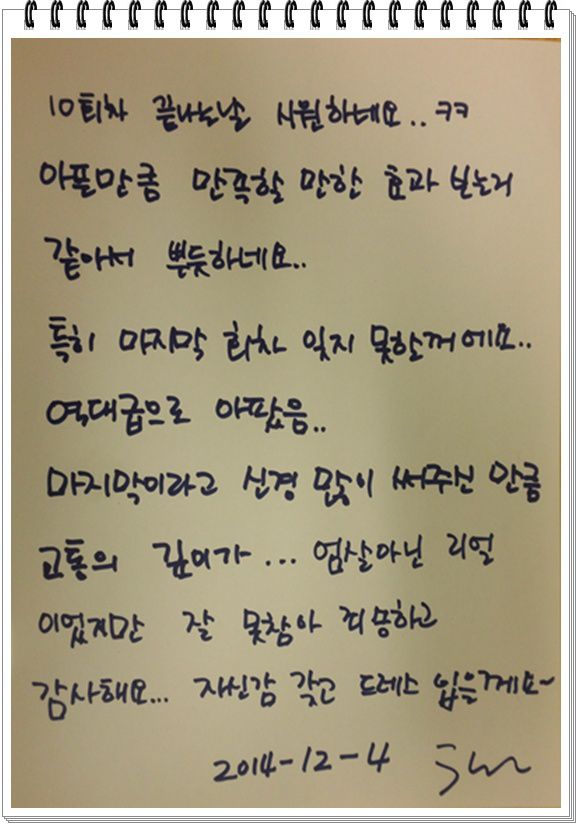 10회차 끝나는날 시원하네요..ㅋㅋ
아픈만큼 만족할 만한 효과 본거
같아서 뿌듯하네요..
특히 마지막 회차 잊지 못할꺼에요..
역대급으로 아팠음..
마지막이라고 신경 많이 써주신 만큼
고통의 깊이가 ... 엄살아닌 리얼
이었지만 잘 못참아 죄송하고
감사해요... 자신감 갖고 드레스 입을께요~
2014-12-4